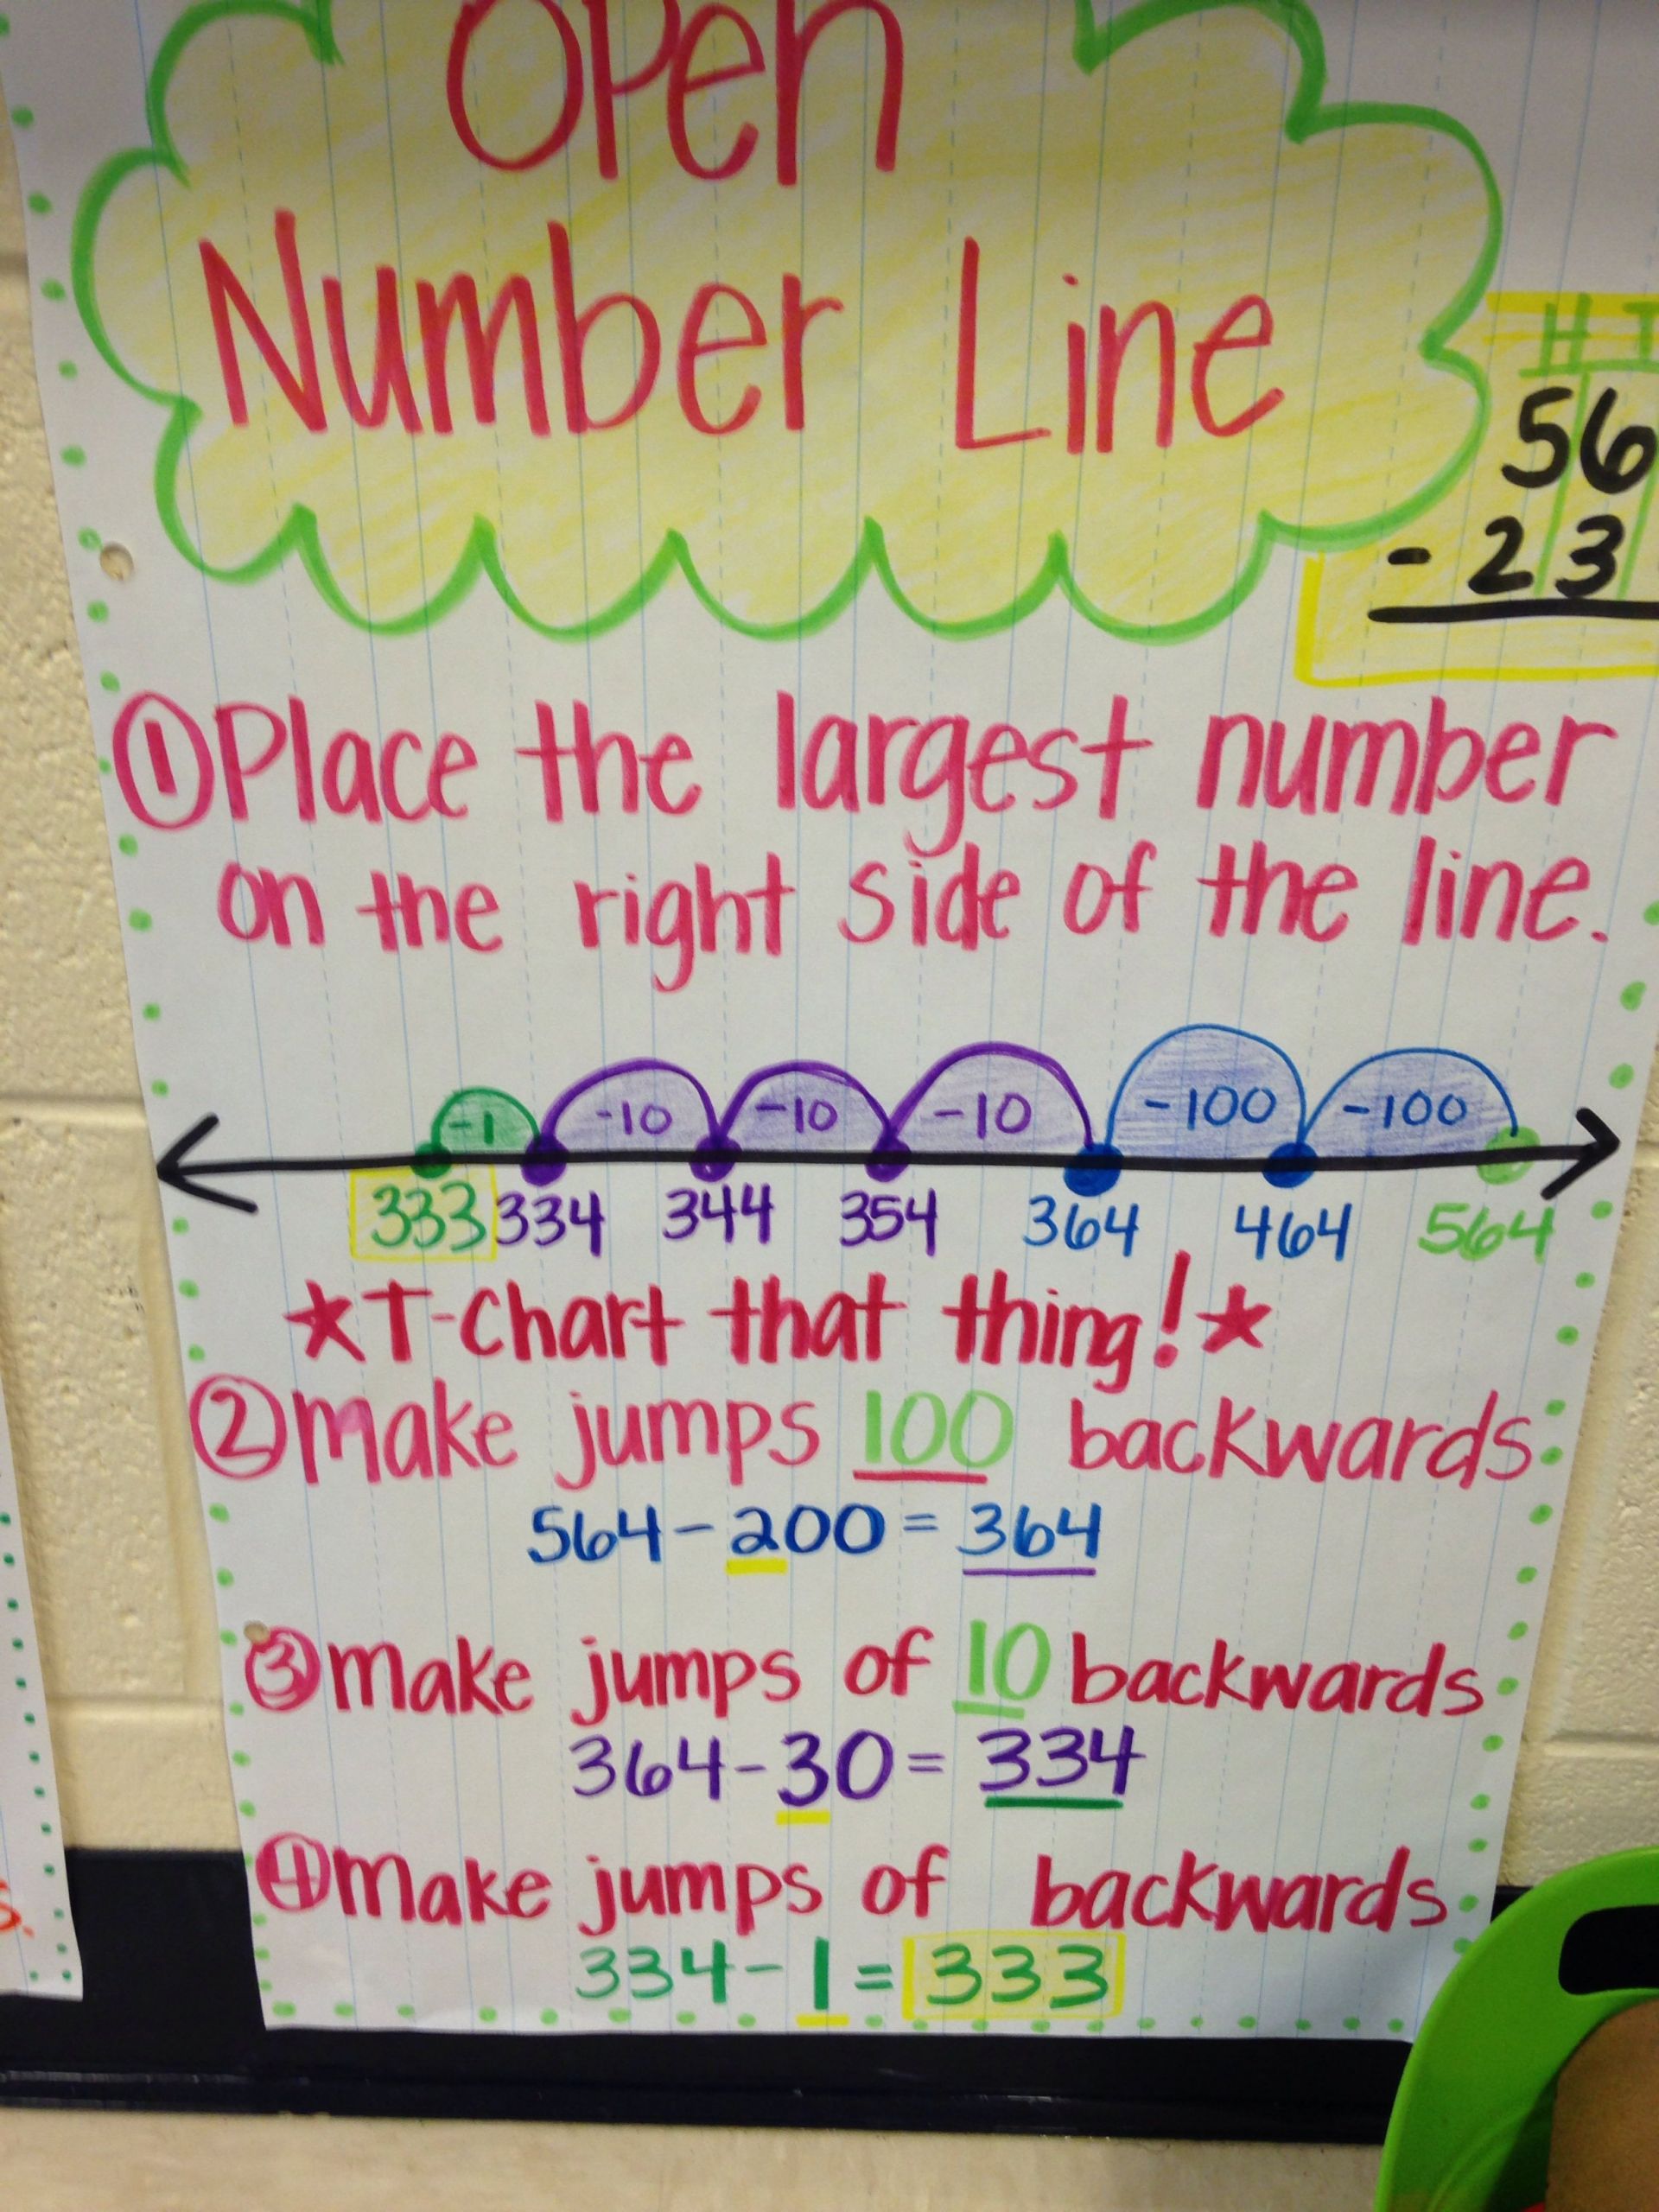 Open
Number Line
H T
56
- 23
①Place the largest number
on the right side of the line.
-1 -10 -10 -10 -100 -100
333 334 344 354 364 464 564
★T-Chart that thing!★
②make jumps 100 backwards
564-200=364
③make jumps of 10 backwards
364-30=334
④make jumps of backwards
334-1=333
s.